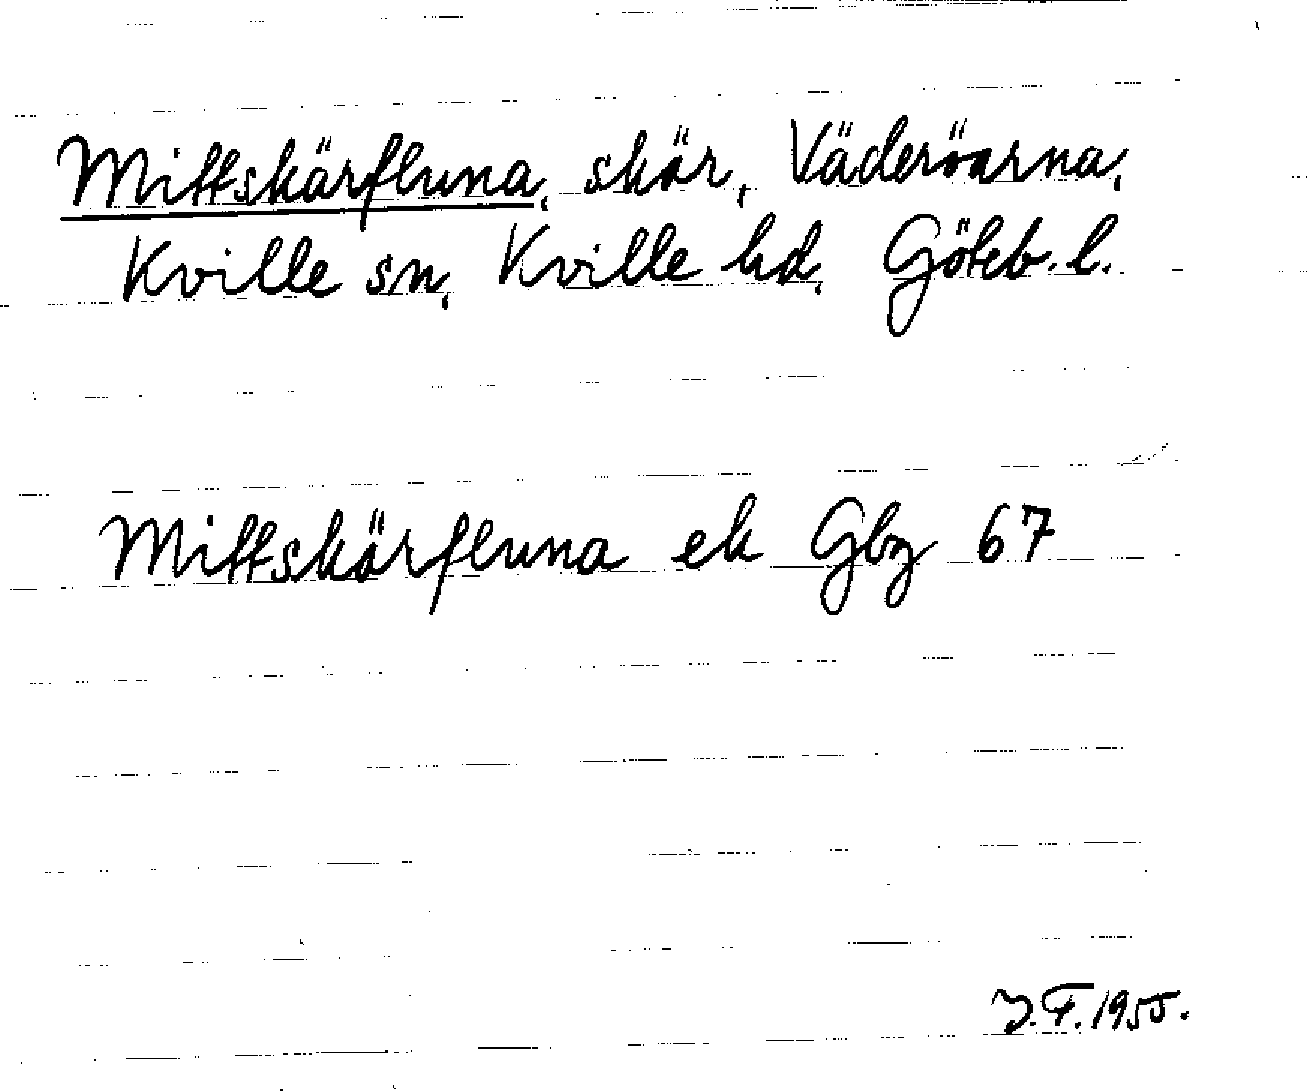 Mittskärfluna, skär, Väderöarna,
Kville sn, Kville hd, Göteb. l.
Mittskärfluna ek Gbg 67
J.F. 1955.